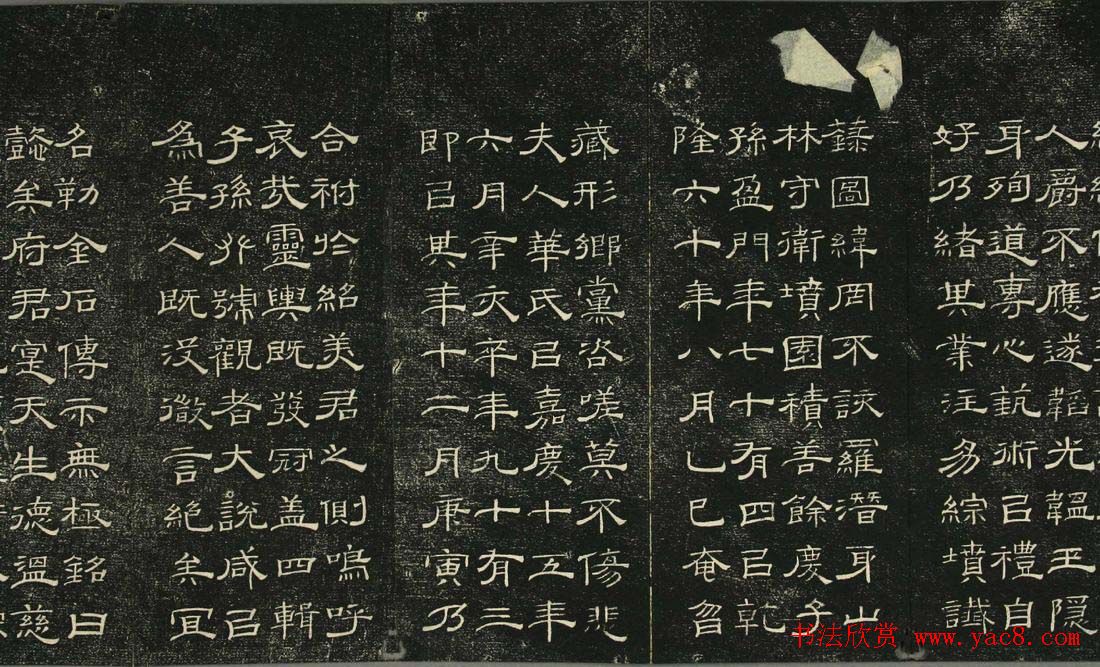 人爵不應遂韜光韞玉隱
身殉道專心埶術㠯禮自
好乃緒其業注易綜墳讖
圖緯罔不該羅潛身山
林守衛墳園積善餘慶子
孫盈門年七十有四㠯乾
隆六十年八月乙巳奄曶
藏形鄉黨咨嗟莫不傷悲
夫人華氏㠯嘉慶十五年
六月辛亥卒年九十有三
即㠯其年十二月庚寅乃
合祔於紹美君之側嗚呼
哀哉靈輿既發冠蓋四輯
子孫號觀者大說咸㠯
為善人既没徽言絕矣宜
名勒金石傳示無極銘曰
懿矣府君寔天生德溫慈
书法欣赏 www.yac8.com